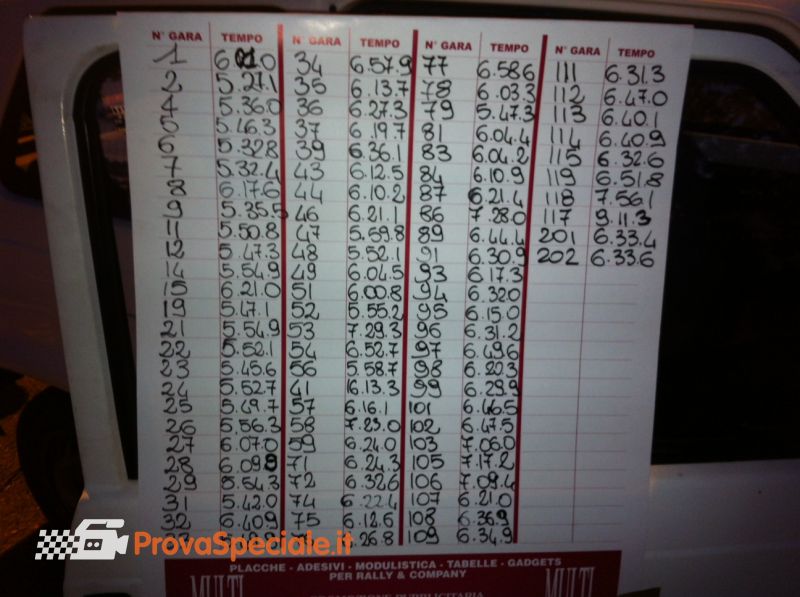 N° GARA TEMPO N° GARA TEMPO N° GARA TEMPO N° GARA TEMPO
1 34 6.57.9 77 6.58.6 111 6.31.3
2 5.27.1 35 6.13.7 78 6.03.3 112 6.47.0
4 5.36.0 36 6.27.3 79 5.47.3 113 6.40.1
5 5.46.3 37 6.19.7 81 6.04.4 114 6.40.9
6 5.32.8 39 6.36.1 83 6.04.2 115 6.32.6
7 5.32.4 43 6.12.5 84 6.10.9 119 6.51.8
8 6.17.6 44 6.10.2 87 6.21.4 118 7.56.1
9 5.35.5 46 6.21.1 86 7.28.0 117 9.11.3
11 5.50.8 47 5.59.8 89 6.44.4 201 6.33.4
12 5.47.3 48 5.52.1 91 6.30.9 202 6.33.6
14 5.54.9 49 6.04.5 93 6.17.3
15 6.21.0 51 6.00.8 94 6.32.0
19 5.47.1 52 5.55.2 95 6.15.0
21 5.54.9 53 7.29.3 96 6.31.2
22 5.52.1 54 6.52.7 97 6.49.6
23 5.45.6 56 5.58.7 98 6.22.3
24 5.52.7 41 16.13.3 99 6.29.9
25 5.49.7 57 6.16.1 101 6.46.5
26 5.56.3 58 7.23.0 102 6.47.5
27 6.07.0 59 6.24.0 103 7.06.0
28 6.09.8 71 6.24.3 105 7.17.2
29 5.54.3 72 6.32.6 106 7.09.4
31 5.42.0 74 6.22.4 107 6.21.0
32 6.40.9 75 6.12.6 108 6.36.9
6.26.8 109 6.34.9
ProvaSpeciale.it
PLACCHE - ADESIVI - MODULISTICA - TABELLE - GADGETS
PER RALLY & COMPANY
MULTI MULTI